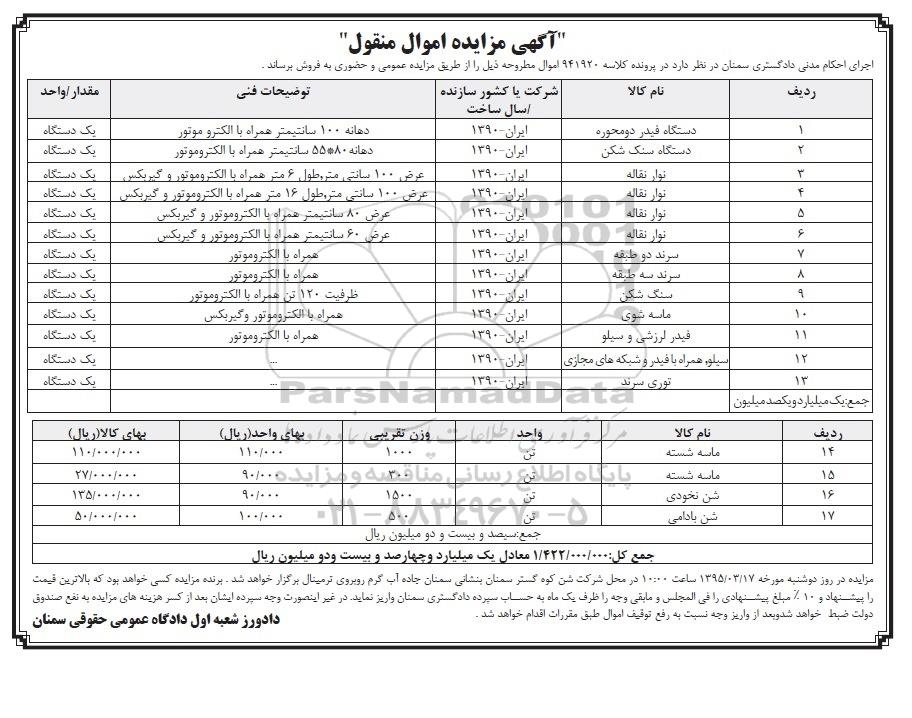 "آگهی مزایده اموال منقول"
اجرای احکام مدنی دادگستری سمنان در نظر دارد در پرونده کلاسه ۹۴۱۹۲۰ اموال مطروحه ذیل را از طریق مزایده عمومی و حضوری به فروش برساند .
ردیف نام کالا شرکت یا کشور سازنده /سال ساخت توضیحات فنی مقدار/واحد
۱ دستگاه فیدر دومحوره ایران-۱۳۹۰ دهانه ۱۰۰ سانتیمتر همراه با الکترو موتور یک دستگاه
۲ دستگاه سنک شکن ایران-۱۳۹۰ دهانه۸۰*۵۵ سانتیمتر همراه با الکتروموتور یک دستگاه
۳ نوار نقاله ایران-۱۳۹۰ عرض ۱۰۰ سانتی متر,طول ۶ متر همراه با الکتروموتور و گیربکس یک دستگاه
۴ نوار نقاله ایران-۱۳۹۰ عرض ۱۰۰ سانتی متر,طول ۱۶ متر همراه با الکتروموتور و گیربکس یک دستگاه
۵ نوار نقاله ایران-۱۳۹۰ عرض ۸۰ سانتیمتر همراه با الکتروموتور و گیربکس یک دستگاه
۶ نوار نقاله ایران-۱۳۹۰ عرض ۶۰ سانتیمتر همراه با الکتروموتور و گیربکس یک دستگاه
۷ سرند دو طبقه ایران-۱۳۹۰ همراه با الکتروموتور یک دستگاه
۸ سرند سه طبقه ایران-۱۳۹۰ همراه با الکتروموتور یک دستگاه
۹ سنگ شکن ایران-۱۳۹۰ ظرفیت ۱۲۰ تن همراه با الکتروموتور یک دستگاه
۱۰ ماسه شوی ایران-۱۳۹۰ همراه با الکتروموتور وگیربکس یک دستگاه
۱۱ فیدر لرزشی و سیلو ایران-۱۳۹۰ همراه با الکتروموتور یک دستگاه
۱۲ سیلو، همراه با فیدر و شبکه های مجازی ایران-۱۳۹۰ ... یک دستگاه
۱۳ توری سرند ایران-۱۳۹۰ ... یک دستگاه
جمع:یک میلیارد ویکصد میلیون
ParsNamadData
ردیف نام کالا واحد وزن تقریبی بهای واحد(ریال) بهای کالا(ریال)
۱۴ ماسه شسته تن ۱۰۰۰ ۱۱۰/۰۰۰ ۱۱۰/۰۰۰/۰۰۰
۱۵ ماسه شسته تن ۳۰۰ ۹۰/۰۰۰ ۲۷/۰۰۰/۰۰۰
۱۶ شن نخودی تن ۱۵۰۰ ۹۰/۰۰۰ ۱۳۵/۰۰۰/۰۰۰
۱۷ شن بادامی تن ۵۰۰ ۱۰۰/۰۰۰ ۵۰/۰۰۰/۰۰۰
پایگاه اطلاع رسانی مناقصه و مزایده
۰۲۱-۸۸۳۴۹۶۷۰-۵
جمع:سیصد و بیست و دو میلیون ریال
جمع کل:۱/۴۲۲/۰۰۰/۰۰۰ معادل یک میلیارد وچهارصد و بیست ودو میلیون ریال
مزایده در روز دوشنبه مورخه ۱۳۹۵/۰۳/۱۷ ساعت ۱۰:۰۰ در محل شرکت شن کوه گستر سمنان بنشانی سمنان جاده آب گرم روبروی ترمینال برگزار خواهد شد . برنده مزایده کسی خواهد بود که بالاترین قیمت
را پیشنهاد و ۱۰ ٪ مبلغ پیشنهادی را فی المجلس و مابقی وجه را ظرف یک ماه به حساب سپرده دادگستری سمنان واریز نماید. در غیر اینصورت وجه سپرده ایشان بعد از کسر هزینه های مزایده به نفع صندوق
دولت ضبط خواهد شدوبعد از واریز وجه نسبت به رفع توقیف اموال طبق مقررات اقدام خواهد شد .
دادورز شعبه اول دادگاه عمومی حقوقی سمنان